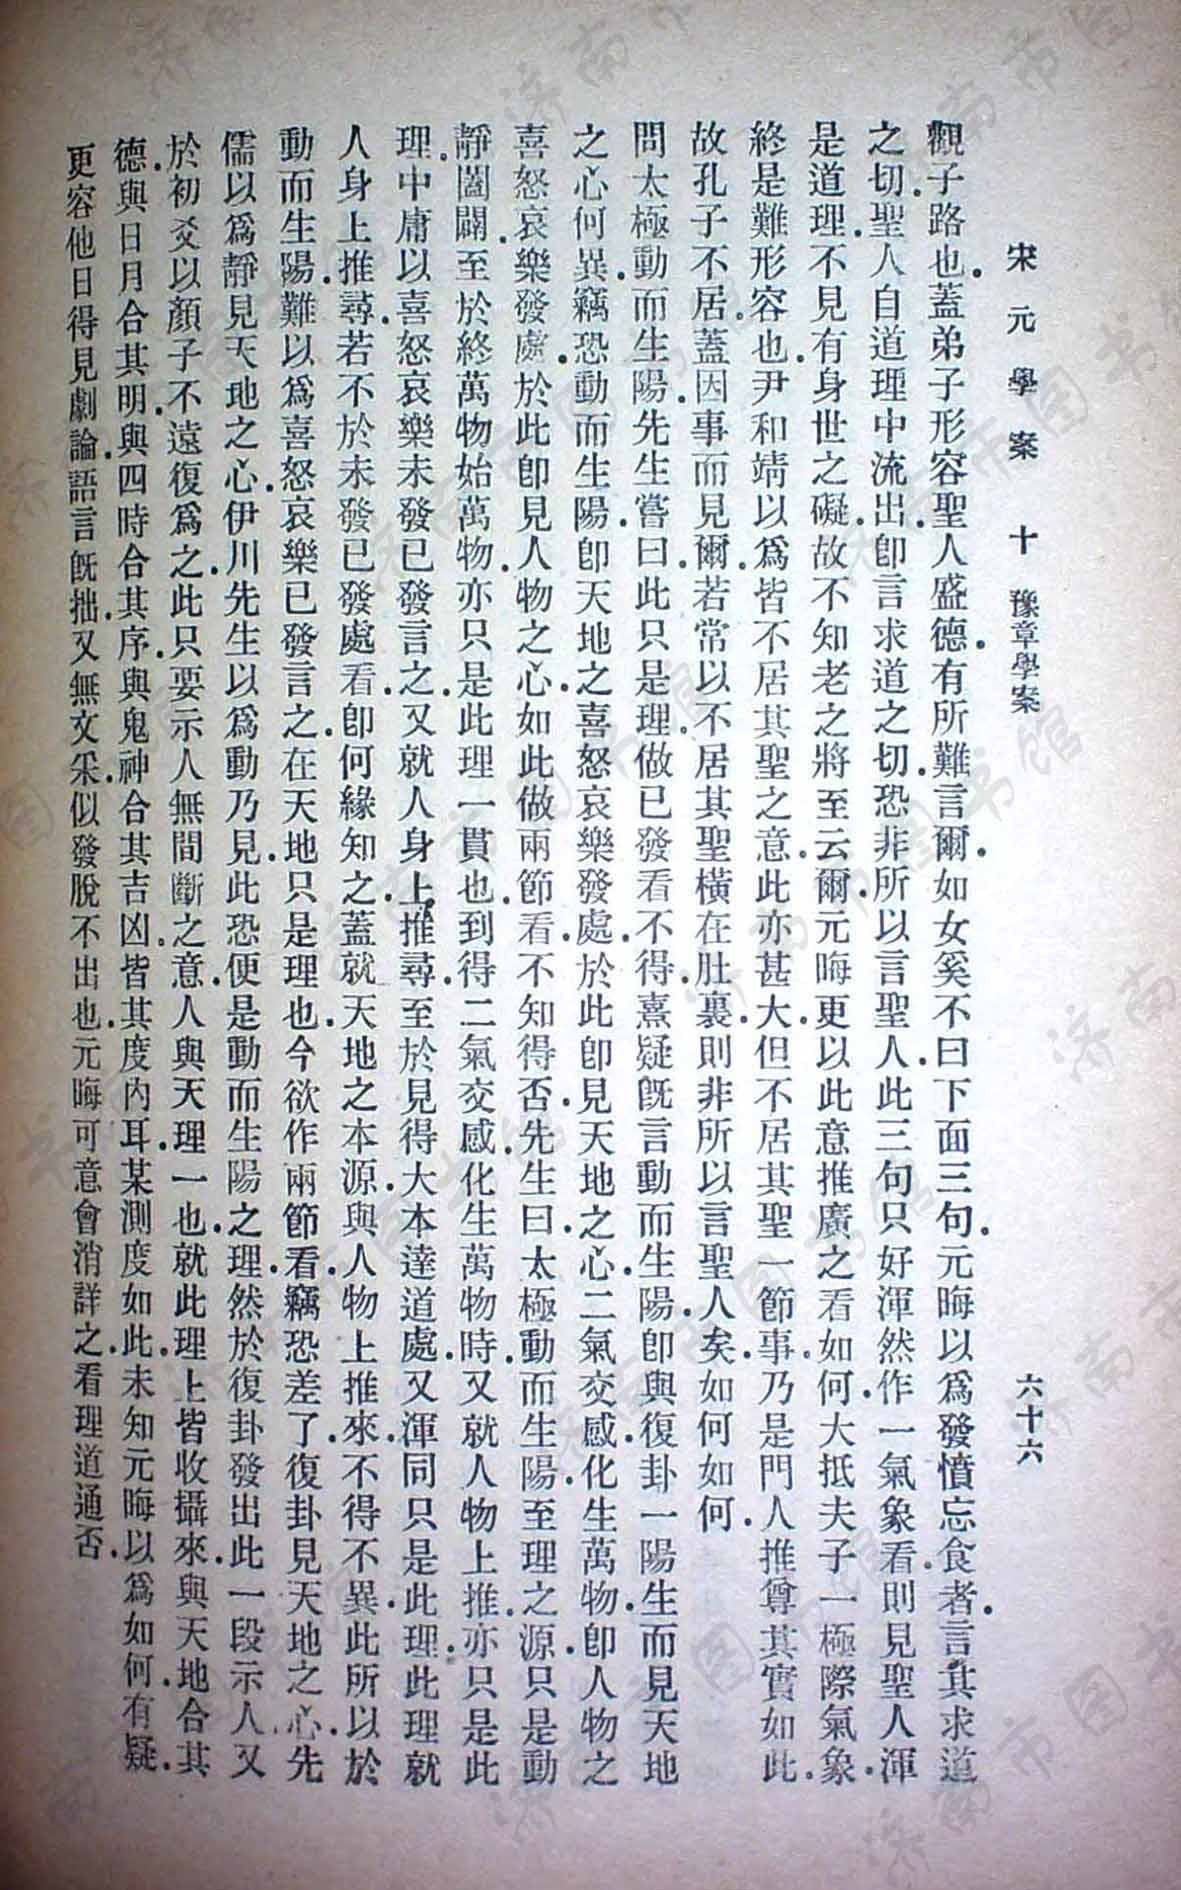 宋元學案 十 豫章學案 六十六
觀子路也。蓋弟子形容聖人盛德。有所難言爾。如女奚不曰下面三句。元晦以爲發憤忘食者。言其求道
之切。聖人自道理中流出。卽言求道之切。恐非所以言聖人。此三句只好渾然作一氣象看。則見聖人渾
是道理。不見有身世之礙。故不知老之將至云爾。元晦更以此意推廣之看如何。大抵夫子一極際氣象。
終是難形容也。尹和靖以爲皆不居其聖之意。此亦甚大。但不居其聖一節事。乃是門人推尊其實如此。
故孔子不居。蓋因事而見爾。若常以不居其聖橫在肚裏。則非所以言聖人矣。如何如何。
問太極動而生陽。先生嘗曰。此只是理。做已發看不得。熹疑旣言動而生陽。卽與復卦一陽生而見天地
之心何異。竊恐動而生陽。卽天地之喜怒哀樂發處。於此卽見天地之心。二氣交感。化生萬物。卽人物之
喜怒哀樂發處。於此卽見人物之心。如此做兩節看。不知得否。先生曰。太極動而生陽。至理之源。只是動
靜闔闢。至於終萬物始萬物。亦只是此理一貫也。到得二氣交感化生萬物時。又就人物上推。亦只是此
理。中庸以喜怒哀樂未發已發言之。又就人身上推尋。至於見得大本達道處。又渾同只是此理。此理就
人身上推尋。若不於未發已發處看。卽何緣知之。蓋就天地之本源。與人物上推來。不得不異。此所以於
動而生陽。難以爲喜怒哀樂已發言之。在天地只是理也。今欲作兩節看。竊恐差了。復卦見天地之心。先
儒以爲靜見天地之心。伊川先生以爲動乃見。此恐便是動而生陽之理。然於復卦發出此一段示人。又
於初爻以顏子不遠復爲之。此只要示人無間斷之意。人與天理一也。就此理上皆收攝來。與天地合其
德。與日月合其明。與四時合其序。與鬼神合其吉凶。皆其度內耳。某測度如此。未知元晦以爲如何。有疑。
更容他日得見劇論。語言旣拙。又無文采。似發脫不出也。元晦可意會消詳之。看理道通否。